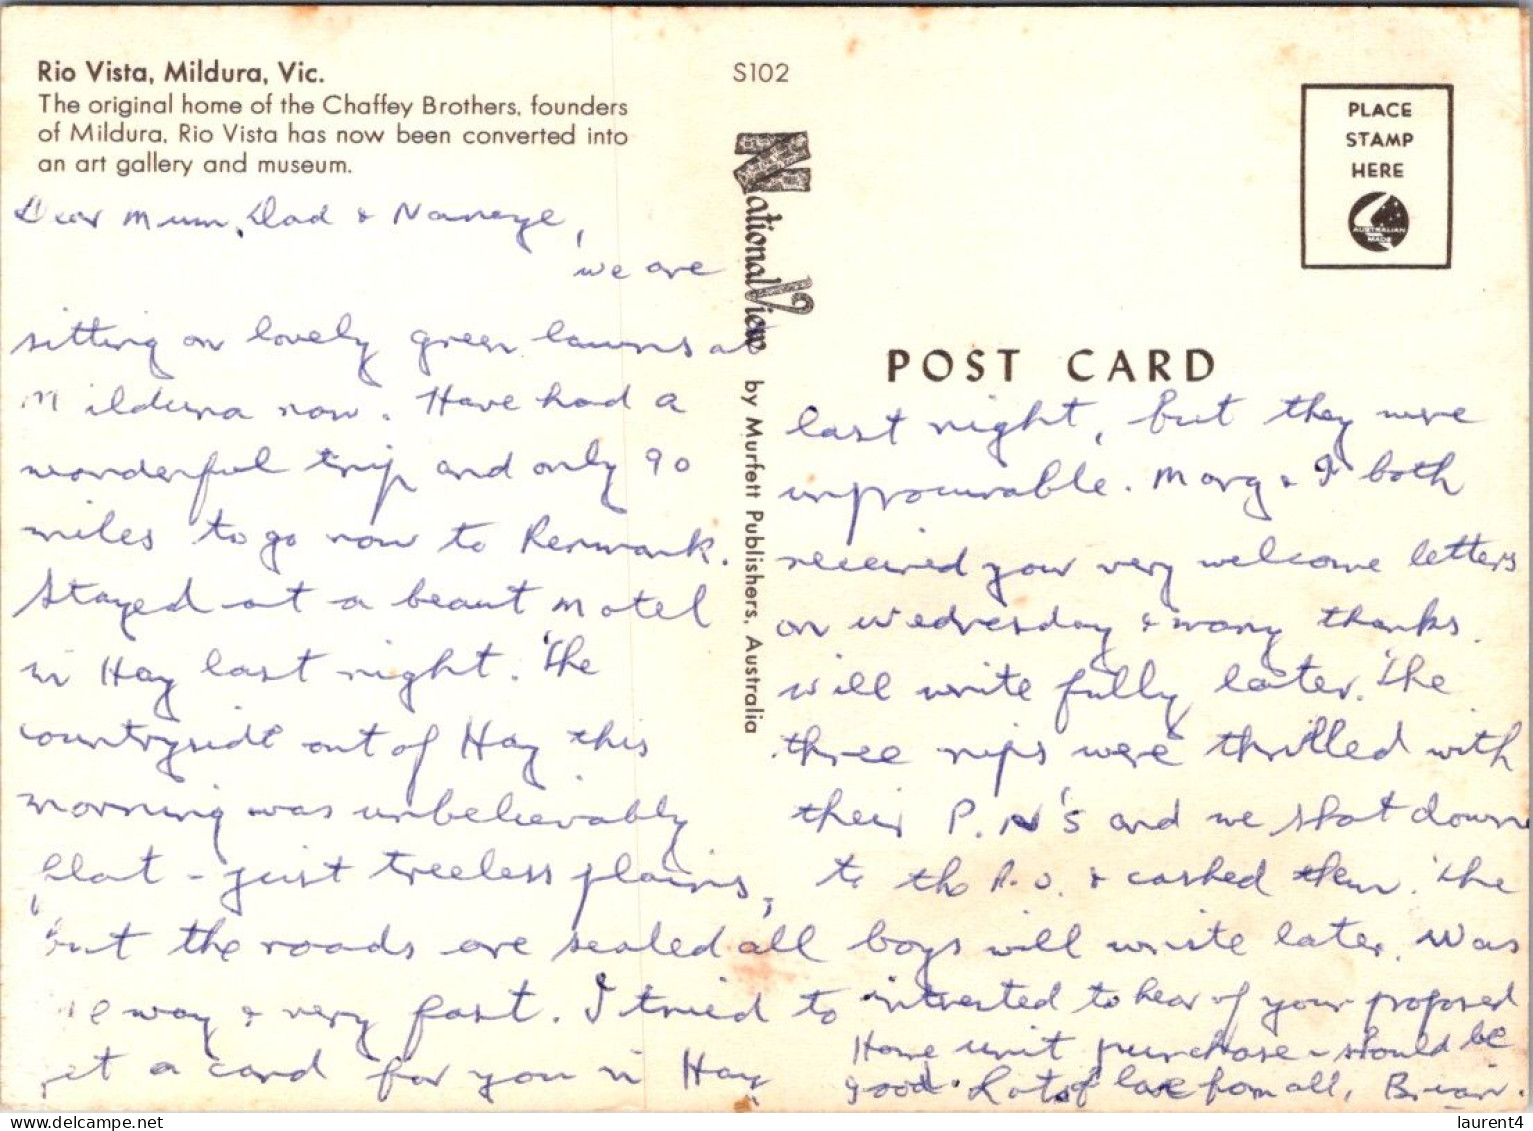 Rio Vista, Mildura, Vic.
The original home of the Chaffey Brothers, founders
of Mildura, Rio Vista has now been converted into
an art gallery and museum.
Dear Mum, Dad &
we are
sitting on lovely green lawns at
Mildura now. Have had a
wonderful trip and only 90
miles to go now to Renmark.
Stayed at a beaut motel
in Hay last night. The
countryside out of Hay this
morning was unbelievably
flat - just treeless plains,
but the roads are sealed all
the way & very fast. I tried to
get a card for you in Hay
S102
National View
by Murfett Publishers, Australia
PLACE
STAMP
HERE
AUSTRALIAN
MADE
POST CARD
last night, but they were
unprocurable. Marg & I both
received your very welcome letters
on Wednesday & many thanks.
Will write fully later. The
three nips were thrilled with
their P.N's and we shot down
to the P.O. & cashed them. The
boys will write later. Was
interested to hear of your proposed
Home unit purchase - should be
good. Lots of love from all, Brian.
laurent4